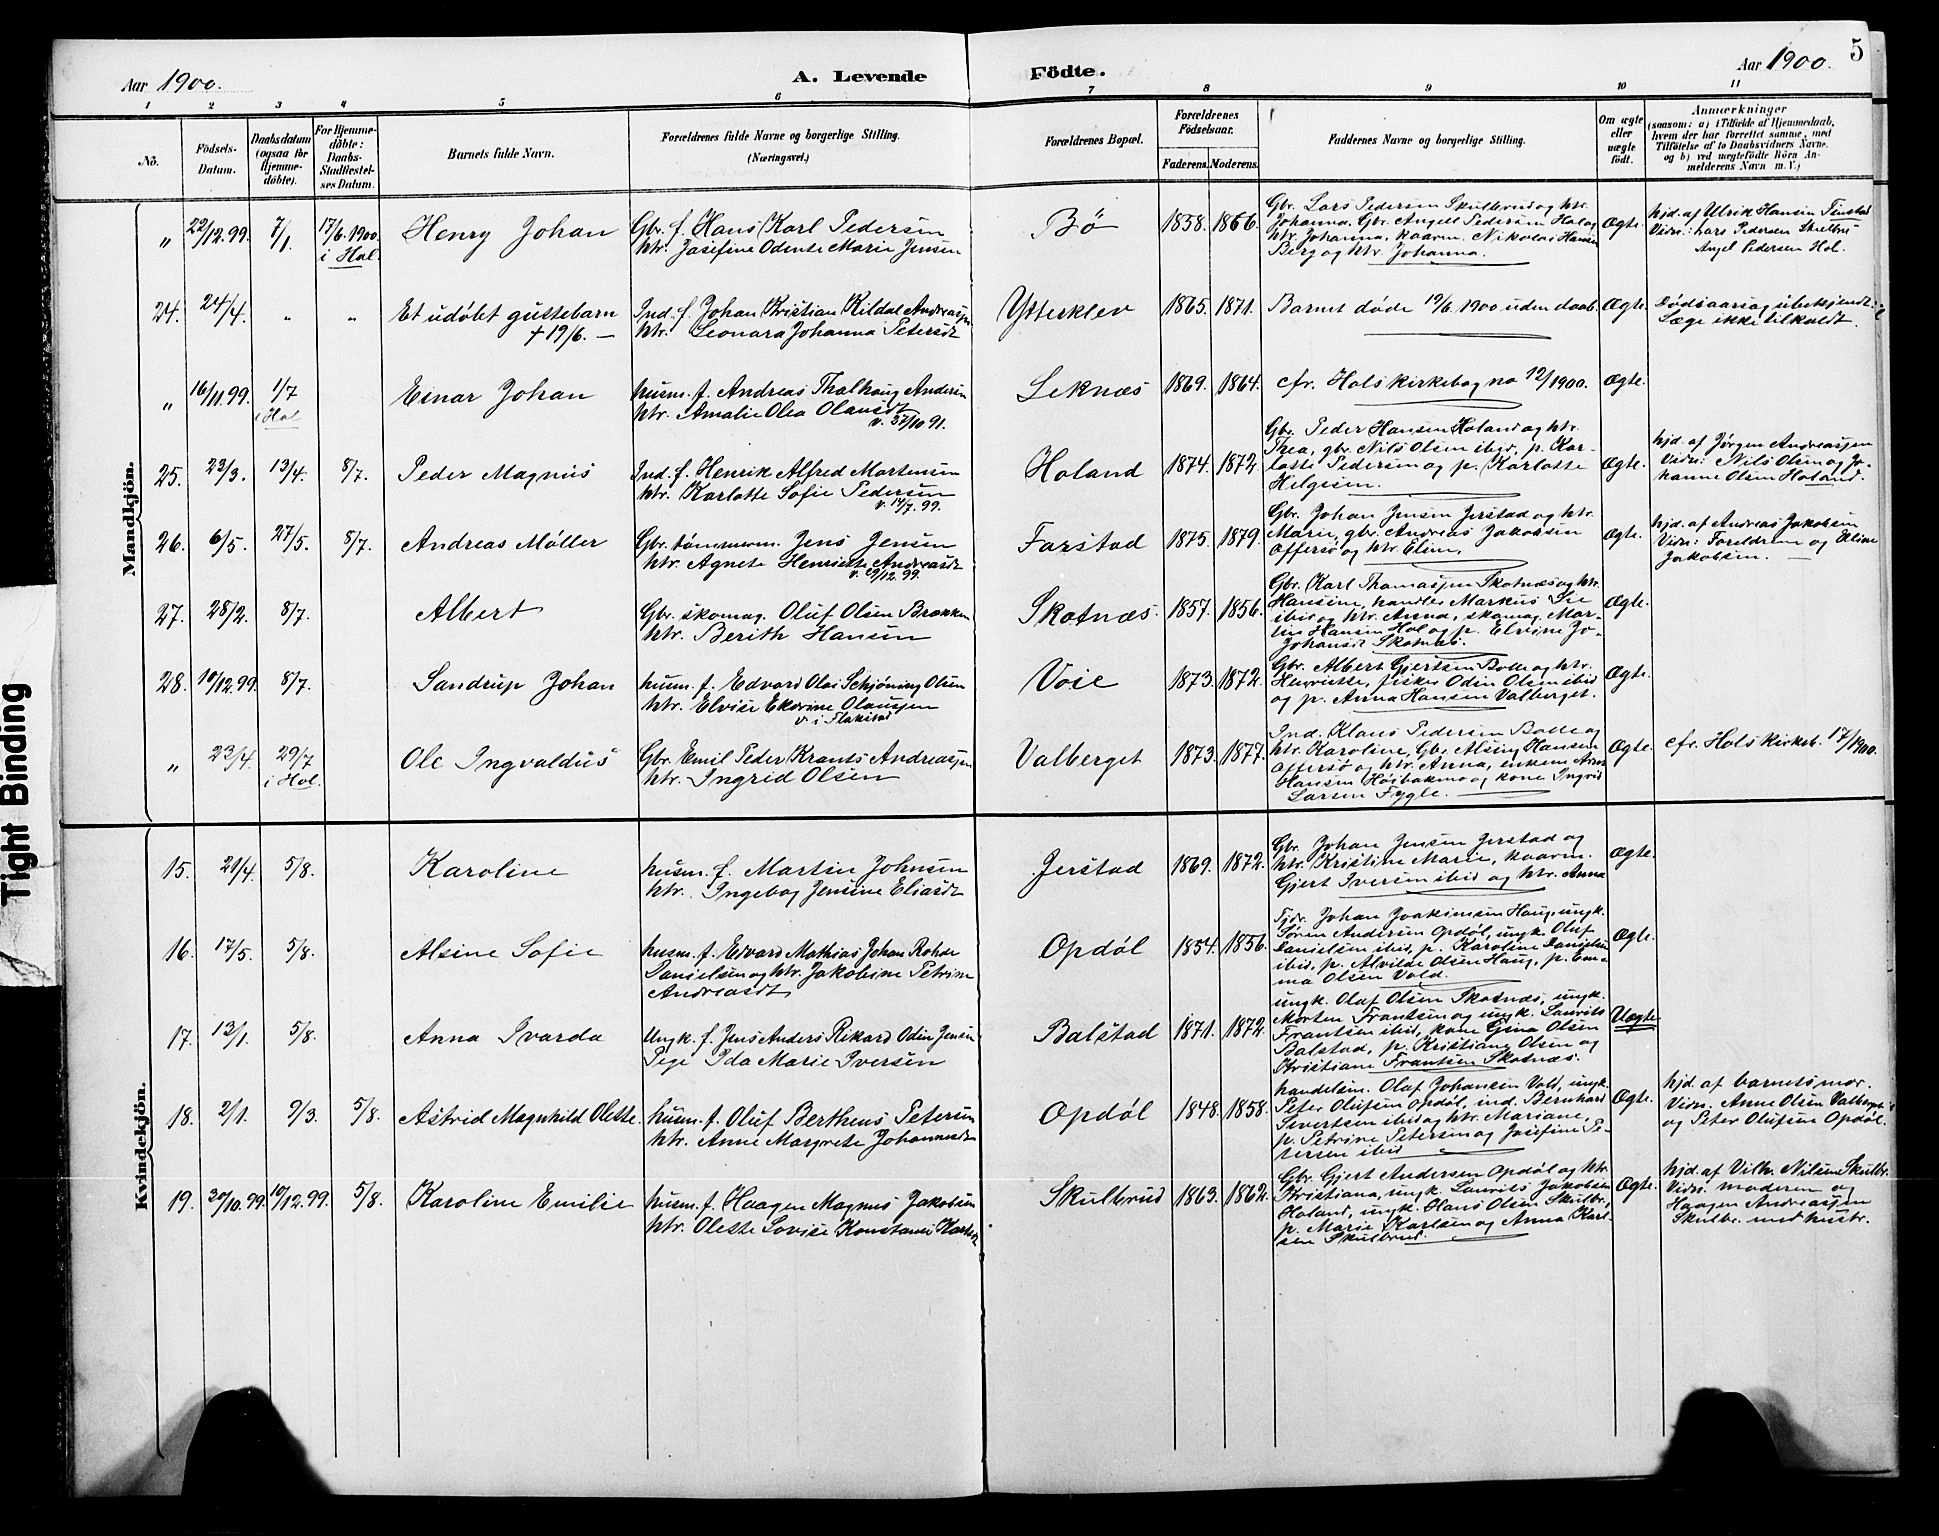 Aar 1900.
A. Levende Födte.
Aar 1900. 5
1 2 3 4 5 6 7 8 9 10 11
No.
Födsels-Datum.
Daabsdatum (ogsaa for Hjemme-döbte).
For Hjemme-döbte: Daabs-Stadfæstel-ses Datum.
Barnets fulde Navn.
Forældrenes fulde Navne og borgerlige Stilling.
(Næringsvei.)
Forældrenes Bopæl.
Forældrenes Födselsaar.
Faderens. Moderens.
Faddernes Navne og borgerlige Stilling.
Om ægte eller uægte födt.
Anmærkninger
(saasom: a) i Tilfælde af Hjemmedaab, hvem der har forrettet samme, med Tilföielse af to Daabsvidners Navne, og b) ved uægtefödte Börn An-melderens Navn m. V.)
Mandkjön.
" 22/12.99. 7/1. 17/6.1900. i Hol. Henry Johan
Gbr. f. Hans Karl Pedersen
htr. Josefine Odente Marie Jensen
Bö 1858. 1866.
Gbr. Lars Pedersen Skulbrud og htr.
Johanna, Gbr. Angell Pedersen Hol og
htr. Johanna, kaarm. Nikolai Hansen
Berg og htr. Johanna.
Ægte.
hjd. af Ulrik Hansen Finstad
Vidn: Lars Pedersen Skulbru
Angel Pedersen Hol.
24. 24/4. " " Et udöbt guttebarn
+ 19/6. —
Ind. f. Johan Kristian Kildal Andreassen
htr. Leonara Johanna Petersdt
Ytterklev 1865. 1871. Barnet døde 19/6 1900 uden daab. Ægte.
Dødsaarsag ubekjendt:
Læge ikke tilkaldt.
" 16/11.99. 1/7 i Hol Einar Johan
husm. f. Andreas Thalhaug Andersen
htr. Amalie Olea Olausdt
v. 27/10 91.
Leknæs 1869. 1864. cfr. Hols kirkebog no 12/1900. Ægte.
25. 23/3. 13/4. 8/7. Peder Magnus
Ind. f. Henrik Alfred Mortensen
htr. Karlotte Sofie Pedersen
v. 14/7. 99.
Holand 1874. 1872.
Gbr. Peder Hansen Holand og htr.
Thea, gbr. Nils Olsen ibid, p. Kar-
lotte Pedersen og p. Karlotte
Helgesen.
Ægte.
hjd. af Jörgen Andreassen
Vidn: Nils Olsen og Jo-
hanne Olsen Holand.
26. 6/5. 27/5. 8/7. Andreas Möller
Gbr. tömmerm. Jens Jensen
htr. Agnete Henriette Andreasdt
v. 9/12. 99.
Farstad 1875. 1879.
Gbr. Johan Jensen Jerstad og htr.
Marie, gbr. Andreas Jakobsen
Offersø og htr. Eline.
Ægte.
hjd. af Andreas Jakobsen
Vidn: Foreldrene og Eline
Jakobsen. —
27. 28/2. 8/7. Albert
Gbr. skomag. Oluf Olsen Brækken
htr. Berith Hansen
Skotnæs. 1857. 1856.
Gbr. Karl Thomassen Skotnæs og htr.
Hansine, handler Markus Lie
ibid og htr. Anna, skomag. Mar-
tin Hansen Hol og p. Elvine Jo-
Johansdt Skotnæs.
Ægte.
28. 10/12.99. 8/7. Sandrup Johan
husm. f. Edvard Olai Schjöning Olsen
htr. Elvise Ekerine Olaussen
v. i Flakstad
Voie 1873. 1872.
Gbr. Albert Gjertsen Bolle og htr.
Henriette, fisker Odin Olsen ibid
og p. Anna Hansen Valberget.
Ægte.
" 23/4. 29/7 i Hol. Ole Ingvaldus
Gbr. Emil Peder Krants Andreassen
htr. Ingrid Olsen
Valberget 1873. 1877.
Ind. Klaus Pedersen Bolle og
htr. Karoline, Gbr. Alsing Hansen
Offersø og htr. Anna, enkem.
Hansen Höibakmo og kone Ingvis
Larsen Fygle. —
Ægte. cfr. Hols kirkeb. 17/1900.
Kvindekjön.
15. 21/4. 5/8. Karoline
husm. f. Martin Johnsen
htr. Ingebog Jensine Eliasdt
Jerstad 1869. 1872.
Gbr. Johan Jensen Jerstad og
htr. Kristine Marie, kaarm.
Gjert Iversen ibid og htr. Anna
Ægte.
16. 17/5. 5/8. Alsine Sofie
husm. f. Edvard Mathias Johan Rohde
Danielsen og htr. Jakobine Petrine
Andreasdt
Opdöl 1854. 1856.
Johan Joakimsen Haug, ungk.
Sören Andersen Opdöl, ungk. Oluf
Danielsen ibid, p. Karoline Danielsen
ibid, p. Alvilde Olsen Haug, p. Em-
ma Olsen Vold.
Ægte.
17. 13/1. 5/8. Anna Ivarda
Ungk. f. Jens Anders Rikard Odin Jensen
Pige Ida Marie Iversen
Balstad 1871. 1872.
ungk. Olaf Olsen Skotnæs, ungk.
Morten Frantsen og ungk. Laurits
Frantsen ibid, kone Gina Olsen
Balstad, p. Kristiane Olsen og
Kristiane Frantsen Skotnæs.
Uægte
18. 2/1. 9/3. 5/8. Astrid Magnhild Olette.
husm. f. Oluf Bertheus Petersen
htr. Anne Margrete Johannesdt
Opdöl 1848. 1858.
handelsm. Olaf Johansen Vold, ungk.
Peter Olufsen Opdöl, ind. Bernhard
Sivertsen ibid og htr. Mariane,
p. Petrine Petersen og Josefine Pe-
tersen ibid
Ægte.
hjd. af barnets mor.
Vidn. Anne Olsen Valberget
og Peter Olufsen Opdöl.
19. 30/10.99. 10/12.99. 5/8. Karoline Emilie
husm. f. Haagen Magnus Jakobsen
htr. Olette Lovise Konstanse
Skulbrud 1863. 1862.
Gbr. Gjert Andersen Opdöl og htr.
Kristiana, ungk. Laurits Jakobsen
Holand, ungk. Hans Olsen Skulbr.
p. Marie Karlsen og Anna Karl-
sen Skulbrud.
Ægte.
hjd. af Vilh. Nilsen Skulbr.
Vidn: moderen og
Haagen Andreassen
Skulbr. med hustr.
Tight Binding